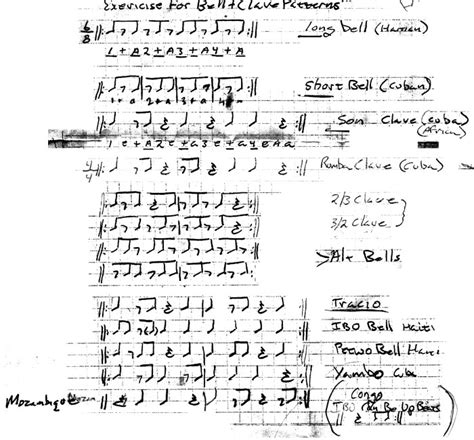 Exericise for Bell + Clave Patterns
6/8 long bell (Haitian)
1 + A 2 + A 3 + A 4 + A
Short Bell (Cuban)
1 + a 2 + a 3 + a 4
Son Clave (Cuba)
(African)
1 e + A 2 e + a 3 e + a 4 e A a
4/4 Rumba Clave (Cuba)
2/3 Clave
3/2 Clave
>Alt Bells
IBO Bell Haiti
Petwo Bell Haiti
Yambo Cuba
Congo
IBO Bo Up Beats